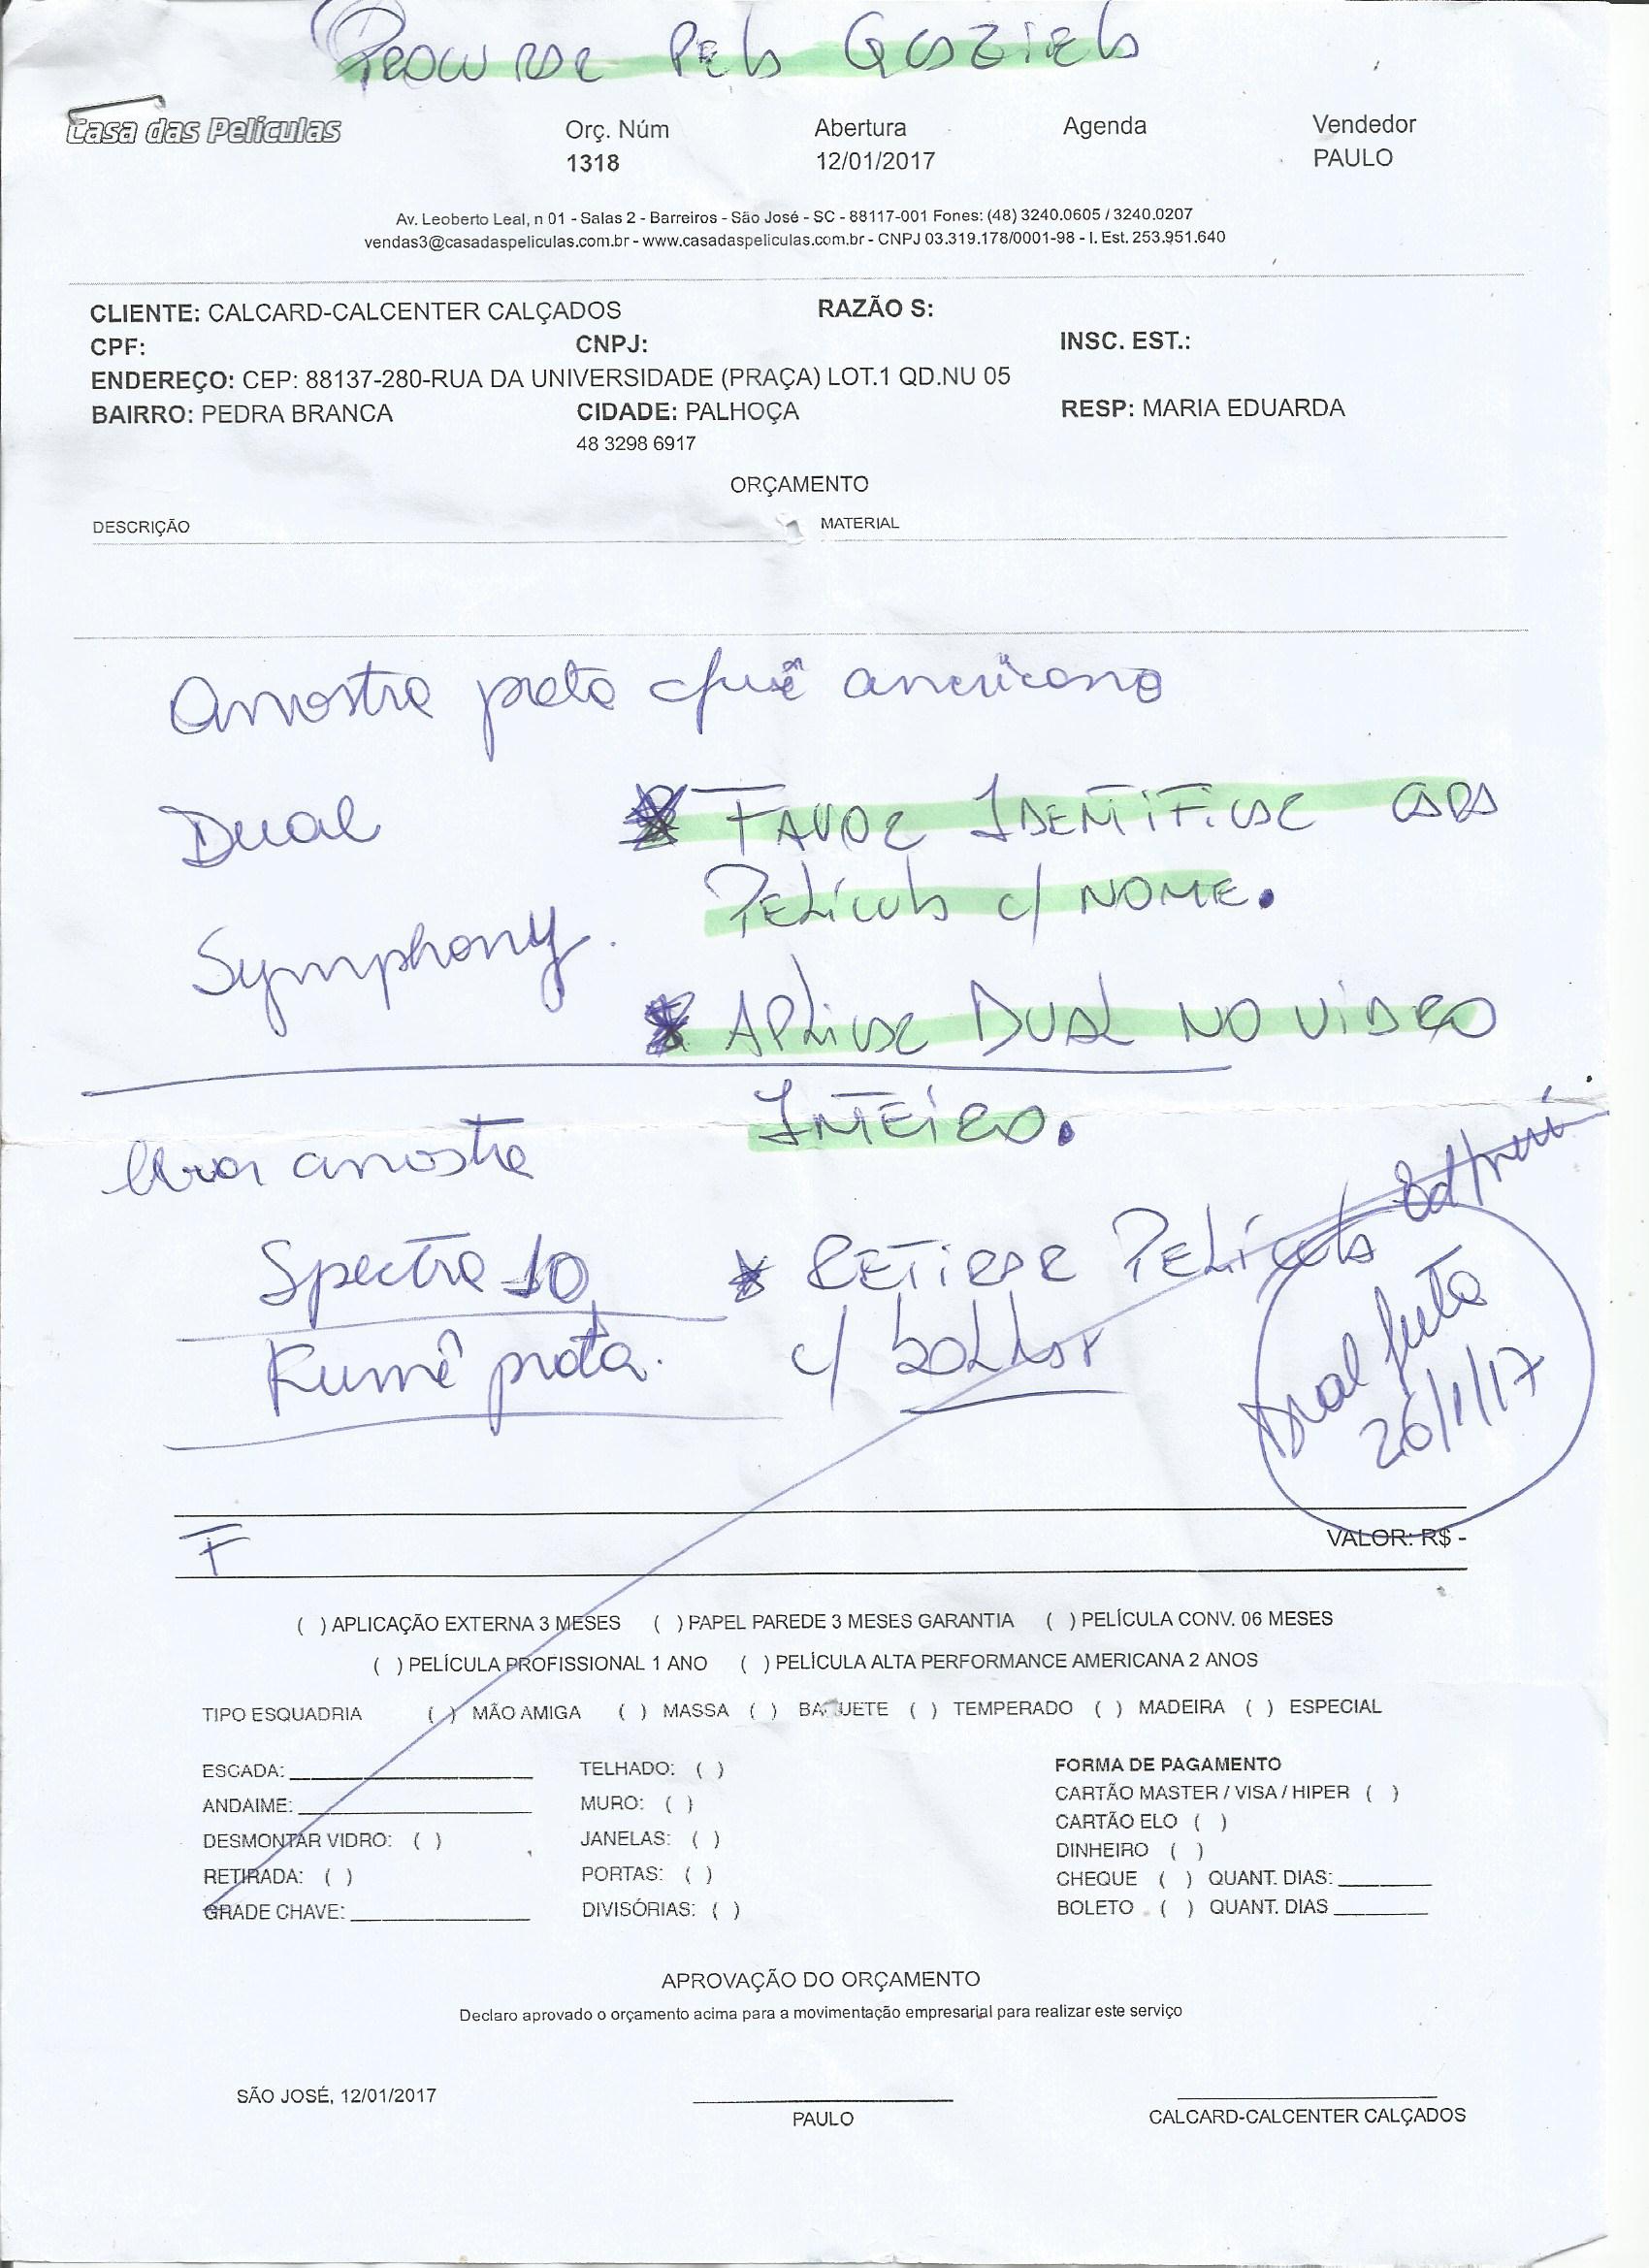 PROCURAR PELA GRAZIELA
Casa das Películas
Orç. Núm Abertura Agenda Vendedor
1318 12/01/2017 PAULO
Av. Leoberto Leal, n 01 - Salas 2 - Barreiros - São José - SC - 88117-001 Fones: (48) 3240.0605 / 3240.0207
vendas3@casadaspeliculas.com.br - www.casadaspeliculas.com.br - CNPJ 03.319.178/0001-98 - I. Est. 253.951.640
CLIENTE: CALCARD-CALCENTER CALÇADOS RAZÃO S:
CPF: CNPJ: INSC. EST.:
ENDEREÇO: CEP: 88137-280-RUA DA UNIVERSIDADE (PRAÇA) LOT.1 QD.NU 05
BAIRRO: PEDRA BRANCA CIDADE: PALHOÇA RESP: MARIA EDUARDA
48 3298 6917
ORÇAMENTO
DESCRIÇÃO MATERIAL
Amostra preto fumê americano
Dual * FAVOR IDENTIFICAR CADA
PELÍCULA C/ NOME.
Symphony.
* APLICAR DUAL NO VIDRO
INTEIRO.
Uma amostra
Spectra 10 * RETIRAR PELÍCULA
Fumê preta. C/ BOLHAS
Dual feita
26/1/17
VALOR: R$ -
F
( ) APLICAÇÃO EXTERNA 3 MESES ( ) PAPEL PAREDE 3 MESES GARANTIA ( ) PELÍCULA CONV. 06 MESES
( ) PELÍCULA PROFISSIONAL 1 ANO ( ) PELÍCULA ALTA PERFORMANCE AMERICANA 2 ANOS
TIPO ESQUADRIA ( ) MÃO AMIGA ( ) MASSA ( ) BAGUETE ( ) TEMPERADO ( ) MADEIRA ( ) ESPECIAL
ESCADA: TELHADO: ( ) FORMA DE PAGAMENTO
ANDAIME: MURO: ( ) CARTÃO MASTER / VISA / HIPER ( )
DESMONTAR VIDRO: ( ) JANELAS: ( ) CARTÃO ELO ( )
RETIRADA: ( ) PORTAS: ( ) DINHEIRO ( )
GRADE CHAVE: DIVISÓRIAS: ( ) CHEQUE ( ) QUANT. DIAS:
BOLETO ( ) QUANT. DIAS
APROVAÇÃO DO ORÇAMENTO
Declaro aprovado o orçamento acima para a movimentação empresarial para realizar este serviço
SÃO JOSÉ, 12/01/2017
PAULO CALCARD-CALCENTER CALÇADOS